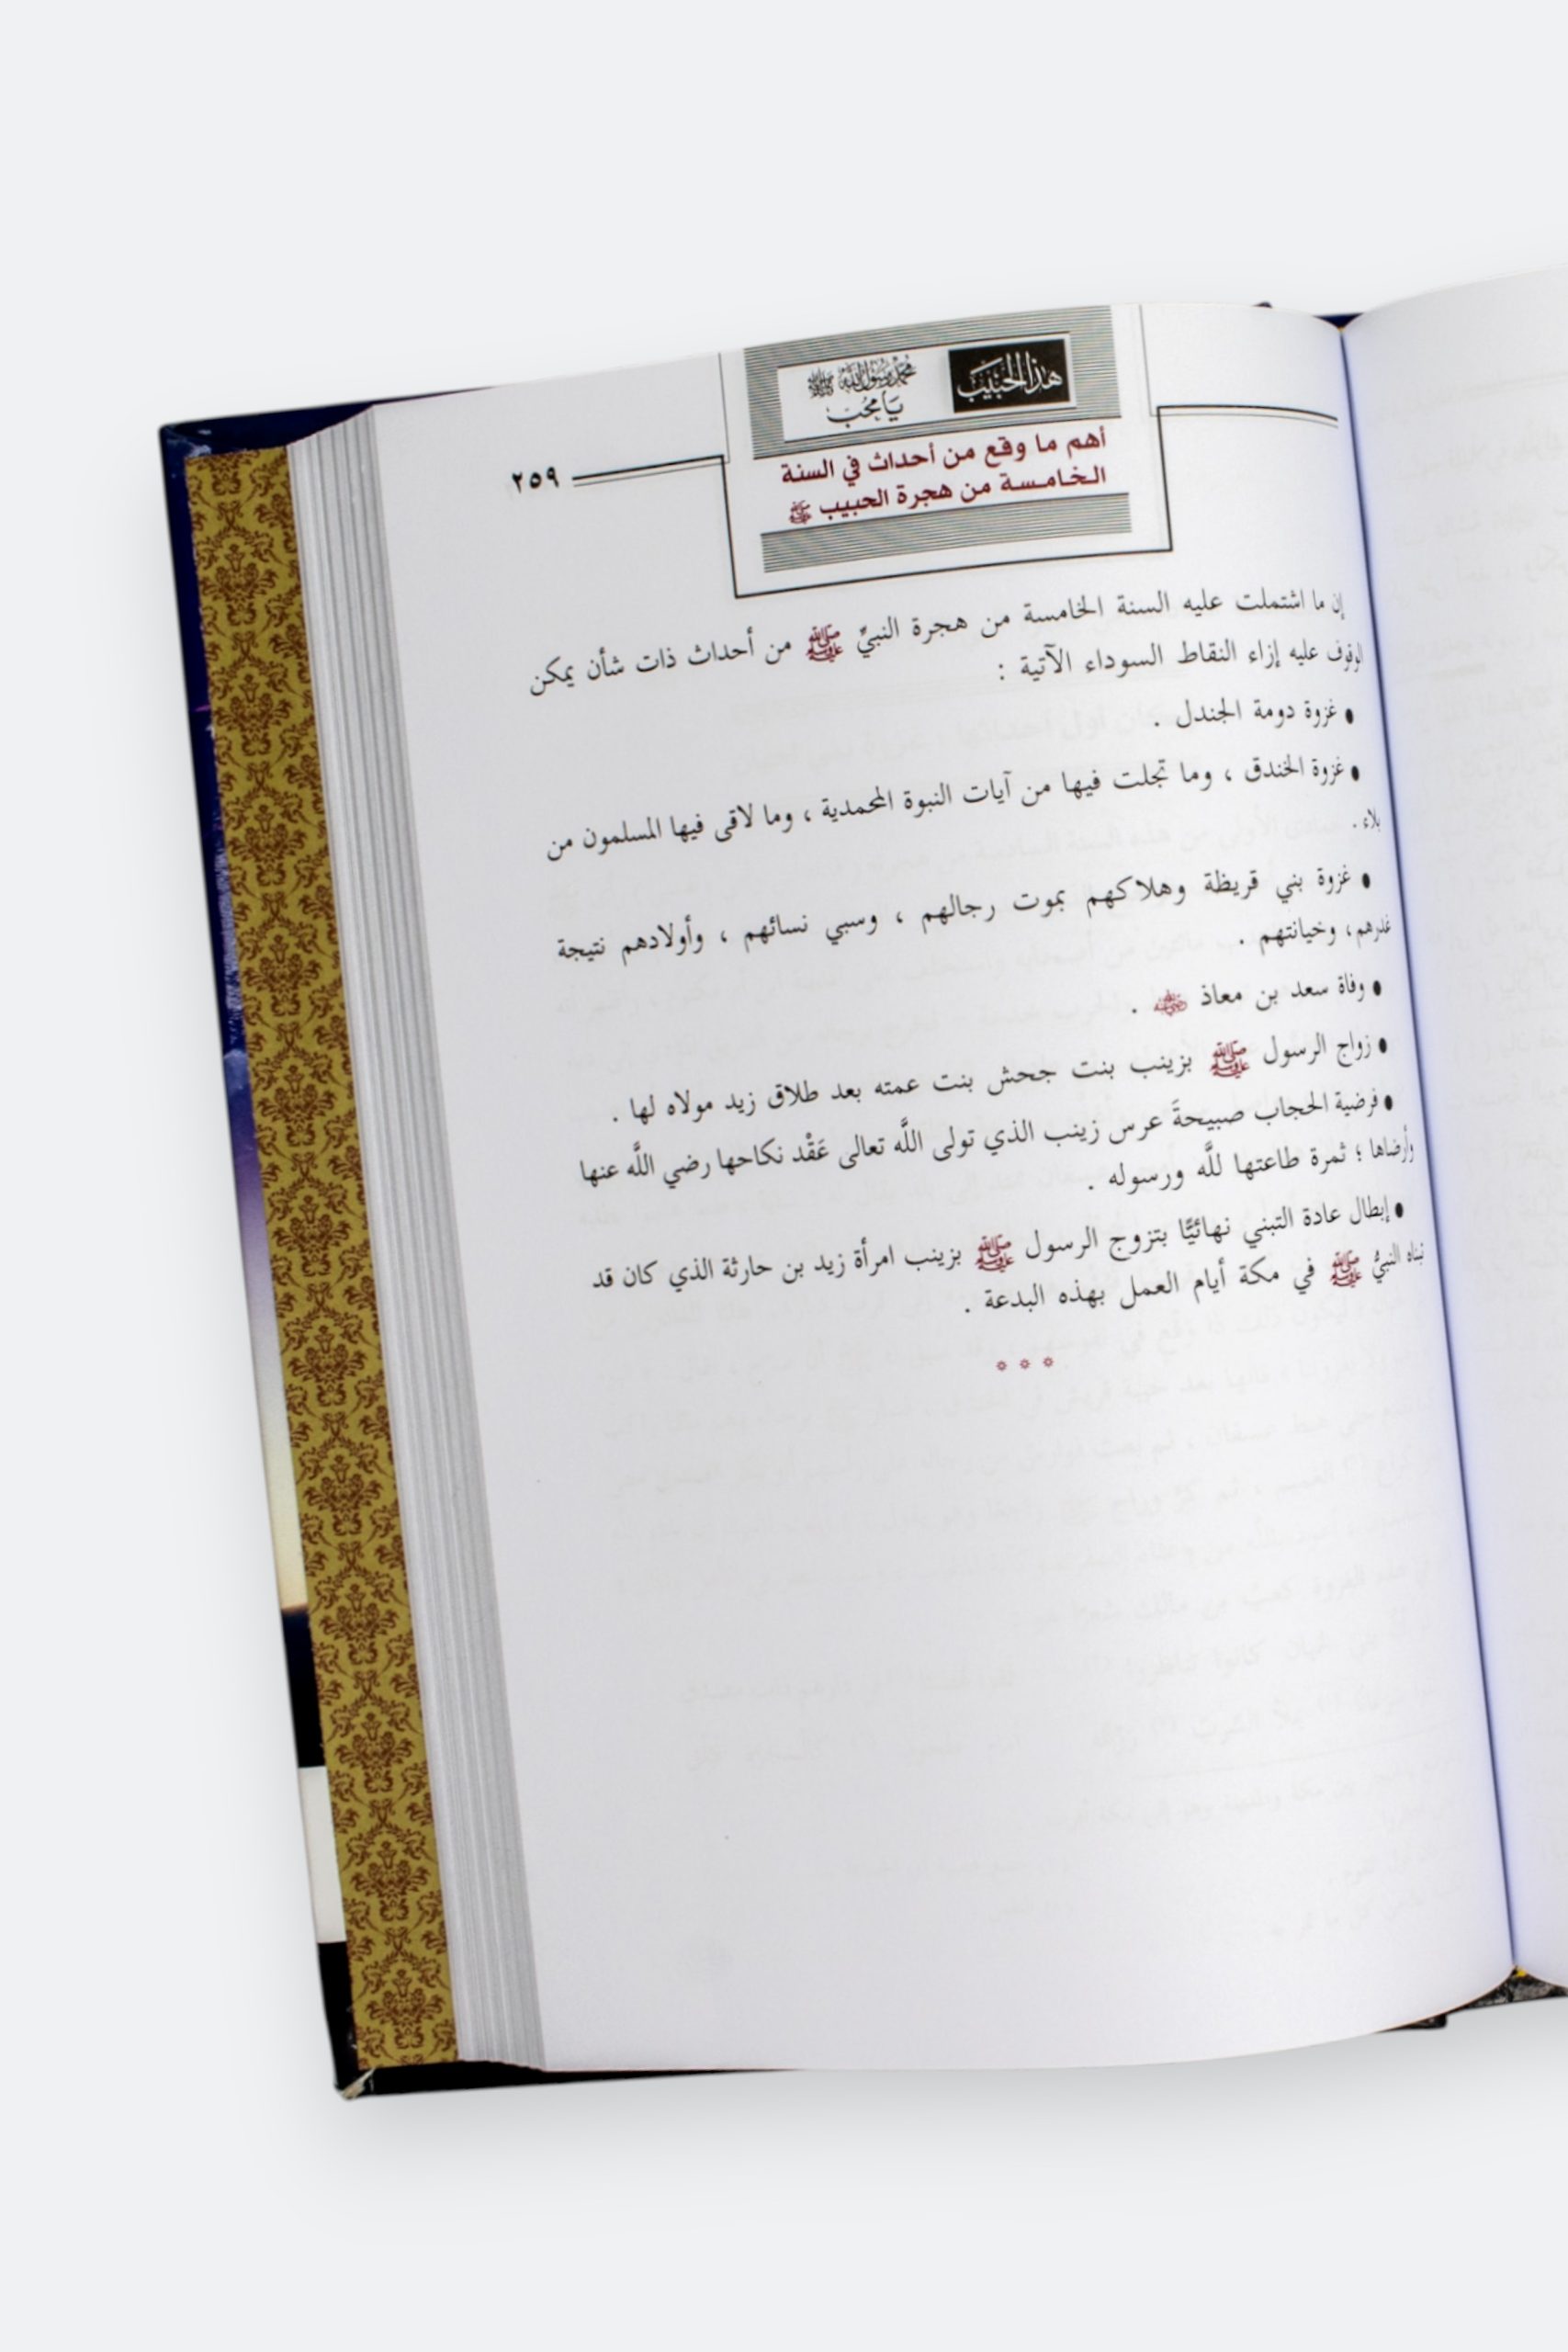 هذا الحبيب
محمد رسول الله ﷺ
يا محب
٢٥٩
أهم ما وقع من أحداث في السنة
الخامسة من هجرة الحبيب ﷺ
إن ما اشتملت عليه السنة الخامسة من هجرة النبيِّ ﷺ من أحداث ذات شأن يمكن
الوقوف عليه إزاء النقاط السوداء الآتية :
● غزوة دومة الجندل .
● غزوة الخندق ، وما تجلت فيها من آيات النبوة المحمدية ، وما لاقى فيها المسلمون من
بلاء .
● غزوة بني قريظة وهلاكهم بموت رجالهم ، وسبي نسائهم ، وأولادهم نتيجة
غدرهم، وخيانتهم .
● وفاة سعد بن معاذ رضي الله عنه .
● زواج الرسول ﷺ بزينب بنت جحش بنت عمته بعد طلاق زيد مولاه لها .
● فرضية الحجاب صبيحةَ عرس زينب الذي تولى اللَّه تعالى عَقْد نكاحها رضي اللَّه عنها
وأرضاها ؛ ثمرة طاعتها للَّه ورسوله .
● إبطال عادة التبني نهائيًّا بتزوج الرسول ﷺ بزينب امرأة زيد بن حارثة الذي كان قد
تبناه النبيُّ ﷺ في مكة أيام العمل بهذه البدعة .
* * *